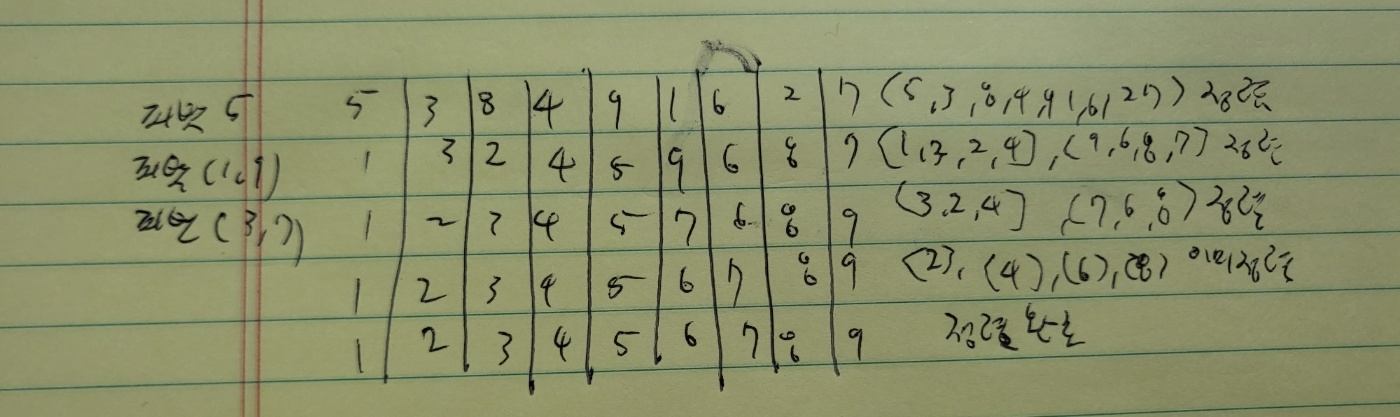 피봇 5 5 3 8 4 9 1 6 2 7 (5,3,8,4,9,1,6,2,7) 정렬
피봇 (1,9) 1 3 2 4 5 9 6 8 7 [1,3,2,4], (9,6,8,7) 정렬
피봇 (3,7) 1 2 3 4 5 7 6 8 9 (3,2,4], (7,6,8) 정렬
1 2 3 4 5 6 7 8 9 (2), (4), (6), (8) 이미정렬
1 2 3 4 5 6 7 8 9 정렬 완료